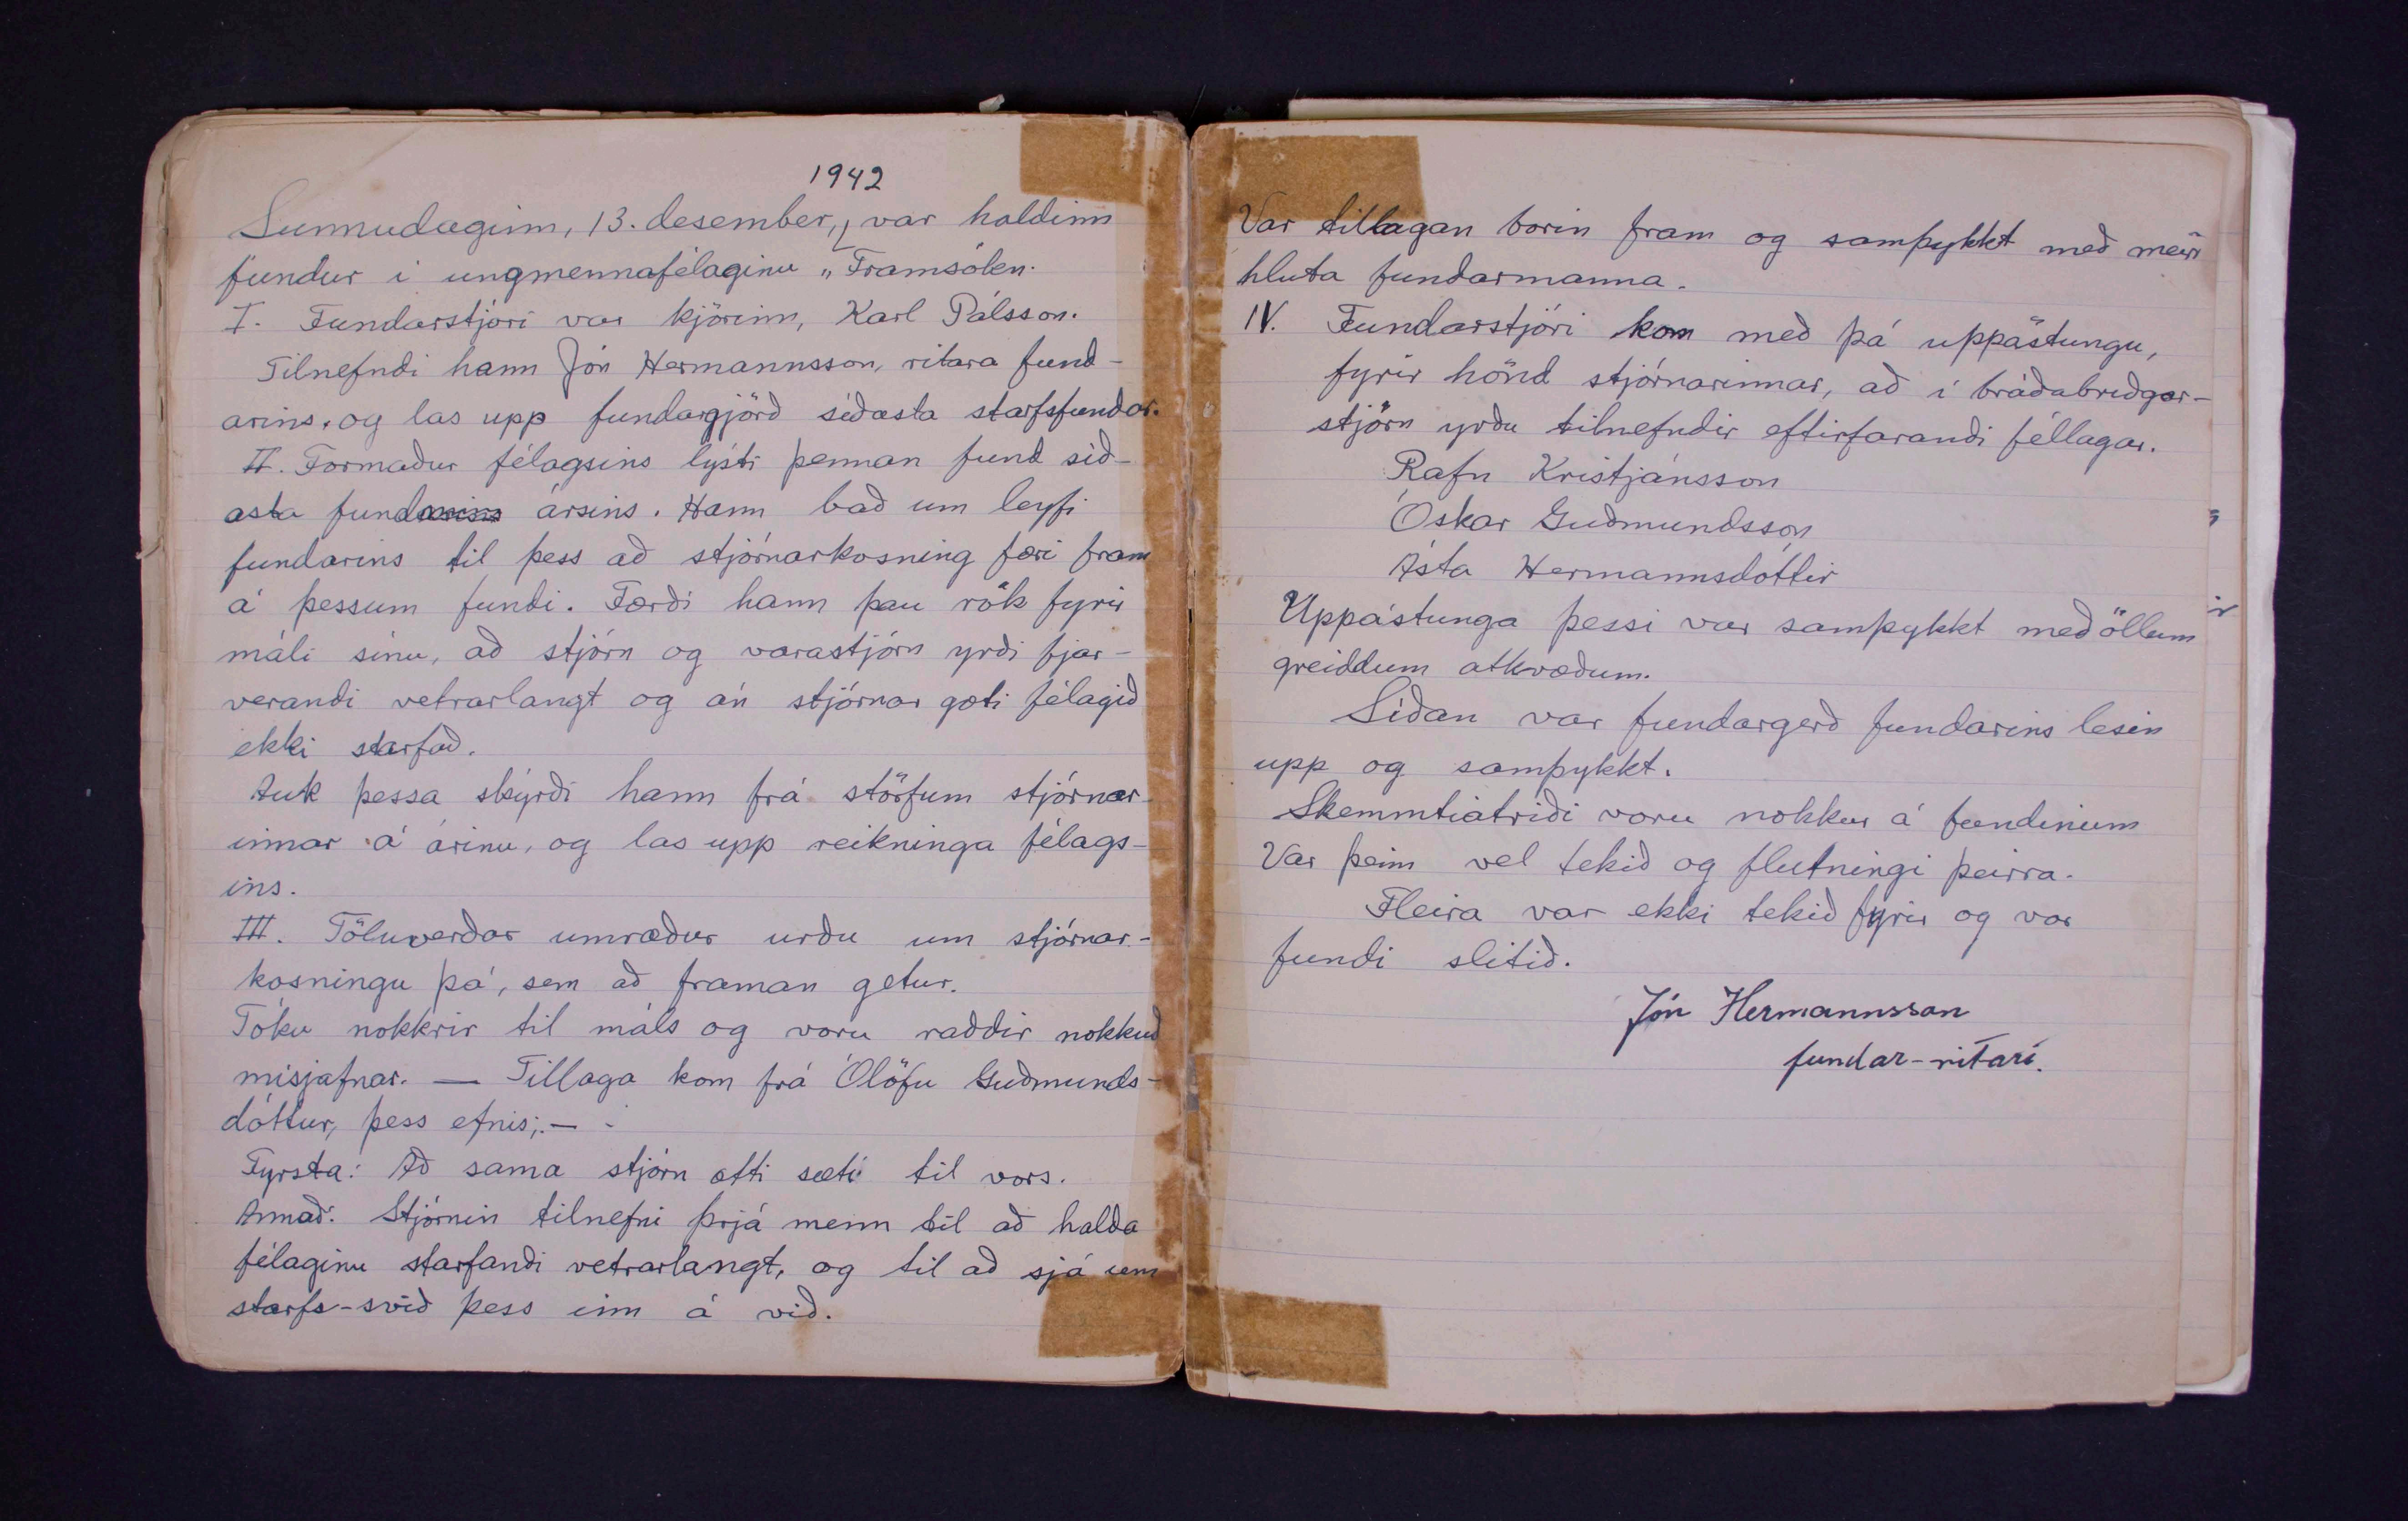 1942
Sunnudaginn, 13. desember, var haldinn
fundur í ungmennafélaginu „Framsókn.
I. Fundarstjóri var kjörinn, Karl Pálsson.
Tilnefndi hann Jón Hermannsson, ritara fund-
arins, og las upp fundargjörð síðasta starfsfundar.
II. Formaður félagsins lýsti þennan fund síð-
asta fund ársins. Hann bað um leyfi
fundarins til þess að stjórnarkosning færi fram
á þessum fundi. Færði hann þau rök fyrir
máli sínu, að stjórn og varastjórn yrði fjar-
verandi vetrarlangt og án stjórnar gæti félagið
ekki starfað.
Auk þessa skýrði hann frá störfum stjórnar-
innar á árinu, og las upp reikninga félags-
ins.
III. Töluverðar umræður urðu um stjórnar-
kosningu þá, sem að framan getur.
Tóku nokkrir til máls og voru raddir nokkuð
misjafnar. — Tillaga kom frá Ólöfu Guðmunds-
dóttur, þess efnis; —
Fyrsta: Að sama stjórn ætti sæti til vors.
Annað: Stjórnin tilnefni þrjá menn til að halda
félaginu starfandi vetrarlangt, og til að sjá um
starfs-svið þess inn á við.
Var tillagan borin fram og samþykkt með meiri
hluta fundarmanna.
IV. Fundarstjóri kom með þá uppástungu,
fyrir hönd stjórnarinnar, að í bráðabriðgar-
stjórn yrðu tilnefndir eftirfarandi féllagar.
Rafn Kristjánsson
Óskar Guðmundsson
Ásta Hermannsdóttir
Uppástunga þessi var samþykkt með öllum
greiddum atkvæðum.
Síðan var fundargerð fundarins lesin
upp og samþykkt.
Skemmtiatriði voru nokkur á fundinum
Var þeim vel tekið og flutningi þeirra.
Fleira var ekki tekið fyrir og var
fundi slitið.
Jón Hermannsson
fundar-ritari.